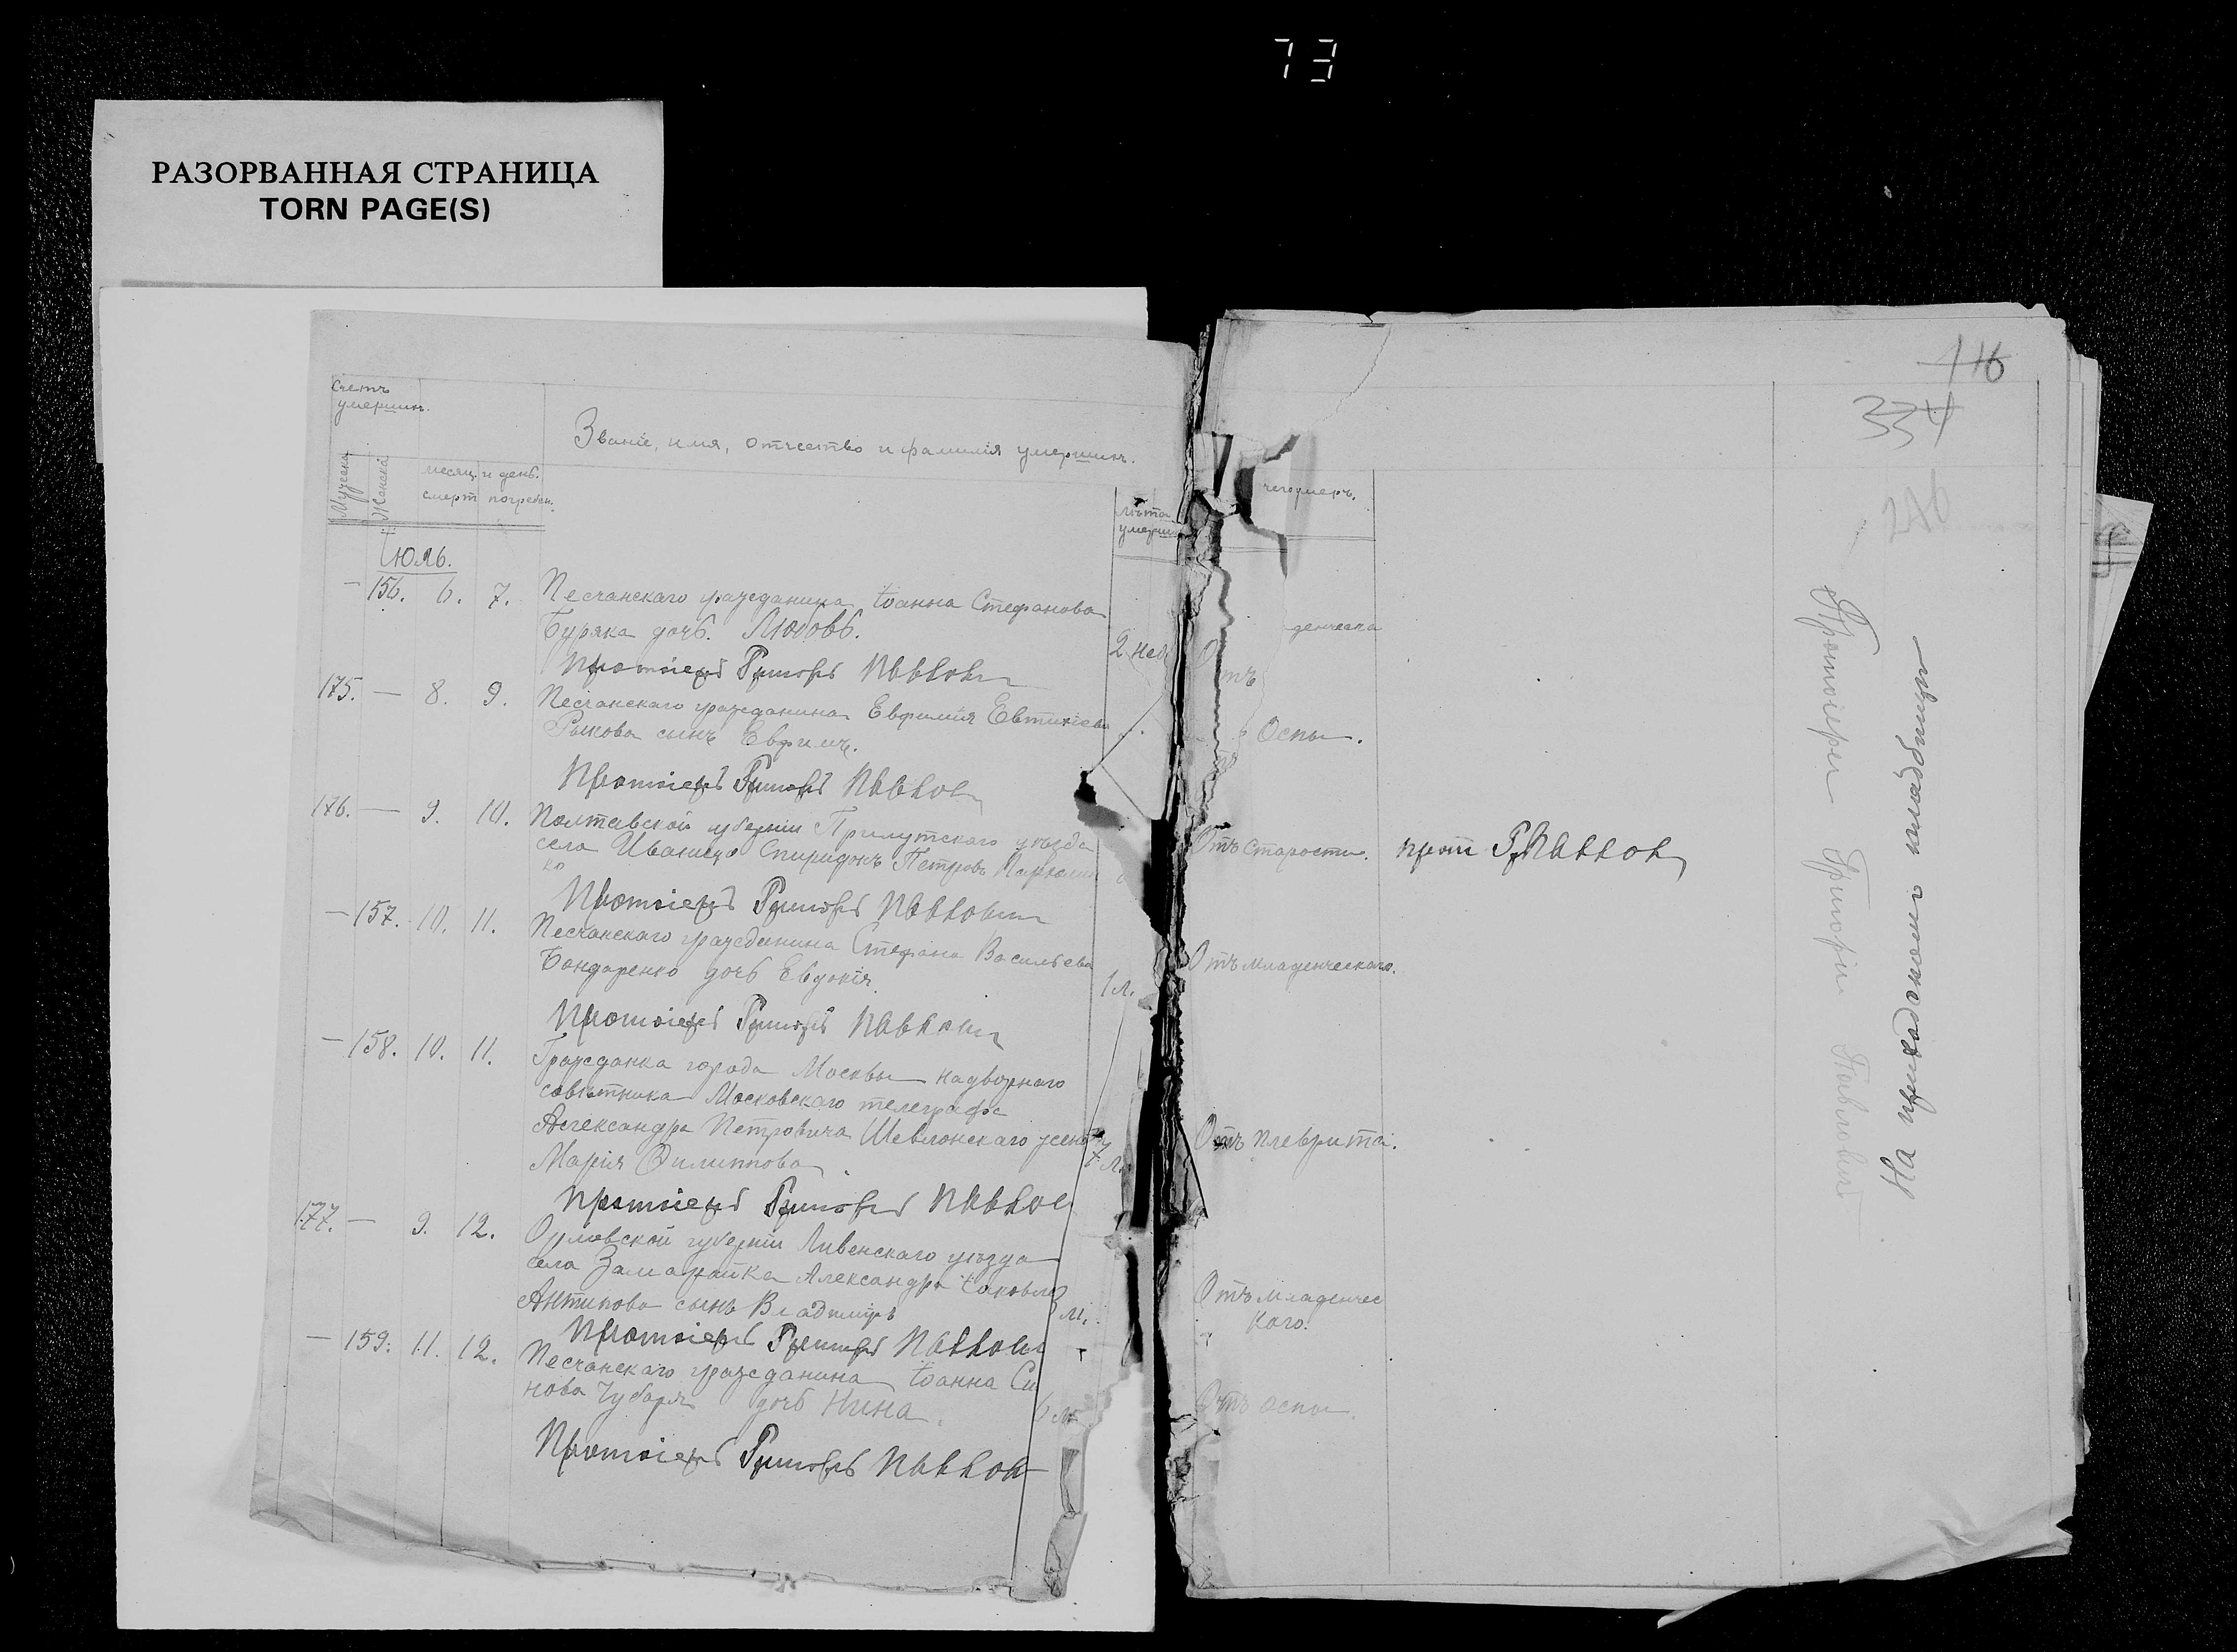 73
РАЗОРВАННАЯ СТРАНИЦА
TORN PAGE(S)
Счетъ
умерших.
Званіе, имя, отчество и фамилія умерших.
Мужеска
Женска
месяц. и день.
смерт погребен.
Лѣта
умерш
чего умеръ.
116
334
276
Июль.
— 156. 6. 7. Песчанскаго гражданина Іоанна Стефанова
Буряка дочь. Любовь.
2 нед
Отъ
денческа
Протоіерей Григорій Павлович
175. — 8. 9. Песчанскаго гражданина Евфимія Евтихіева
Рыкова сынъ Евфимъ.
Оспы.
Протоіерей Григорій Павлов
176. — 9. 10. Полтавской губерніи Прилутского уѣзда
села Иваница Спиридонъ Петровъ
ко
Отъ старости. прот Г Павлов
Протоіерей Григорій Павлович
— 157. 10. 11. Песчанскаго гражданина Стефана Васильева
Бондаренко дочь Евдокія.
1 л.
Отъ младенческаго.
Протоіерей Григорій Павлович
— 158. 10. 11. Гражданка города Москвы надворнаго
совѣтника Московскаго телеграфа
Александра Петровича Шевлонскаго жена
Марія Филиппова
Отъ плеврита.
Протоіерей Григорій Павлов
177. — 9. 12. Орловской губерніи Ливенскаго уѣзда
села Замарайка Александра Іаковлев
Антипова сынъ Владиміръ
3 м.
Отъ младенчес
каго.
Протоіерей Григорій Павлович
— 159. 11. 12. Песчанскаго гражданина Іоанна Си
нова Чубаря дочь Нина.
6 м
Отъ оспы.
Протоіерей Григорій Павлов
Протоіерей Григорій Павлович
На приходскомъ кладбищѣ